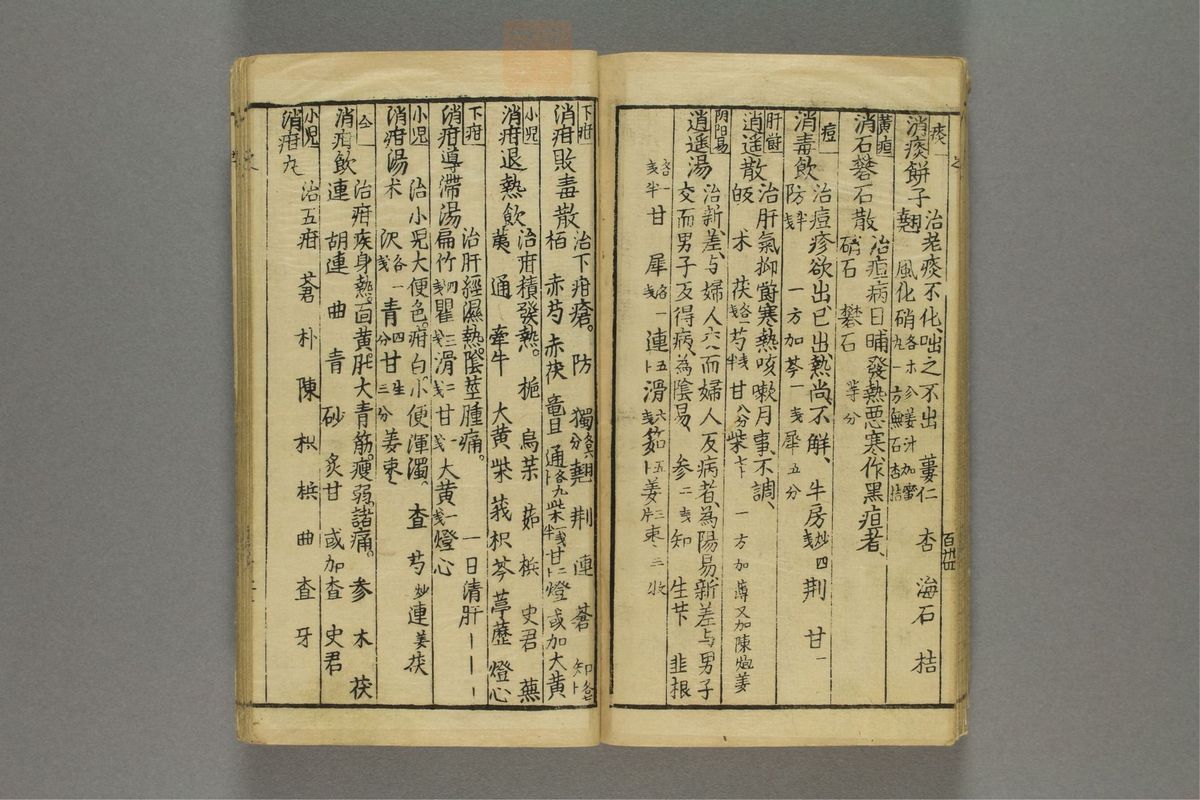 痰
消痰餅子
治老痰不化、咄之不出 蔞仁 杏 海石 桔
翹 風化硝
黄疸
消石礬石散
治疸病日晡發熱悪寒、作黑疸者、
硝石 礬石 等分
痘
消毒飲
治痘疹欲出、已出、熱尚不解、 牛房 炒四 荆 甘一
防 一方加芩一戔 犀五分
肝欝
逍遥散
治肝氣抑欝寒熱咳嗽月事不調、
皈 术 茯 芍 甘 八分 柴 一方加薄 又加陳煨姜
陰陽易
逍遥湯
治新差、与婦人六一而婦人反病者、為陽易、新差与男子
交而男子反得病、為陰易、 参二戔 知 生苄 韭根
甘 犀 連 滑 姜三片 枣二
百卌
下疳
消疳敗毒散
治下疳瘡。 防 獨 翹 荆 連 蒼 知
栢 赤芍 赤茯 竜旦 通 柴 甘 燈 或加大黄
小児
消疳退熱飲
治疳積發熱。 梔 烏菜 茹 梹 史君 蕪
荑 通 牽牛 大黄 柴 莪 枳 芩 葶藶 燈心
下疳
消疳導滞湯
治肝經濕熱、陰莖腫痛。 一日清肝ーーー
扁竹 瞿 滑 甘 大黄 燈心
小児
消疳湯
治小児大便色疳白、小便渾濁。 査 芍炒 連姜 茯
术 沢 青四分 甘生三分 姜枣
仝
消疳飲
治疳疾身熱。面黄、肚大青筋。瘦弱、諸痛。 参 木 茯
連 胡連 曲 青 砂 炙甘 或加査 史君
小児
消疳丸
治五疳 蒼 朴 陳 枳 梹 曲 査 牙